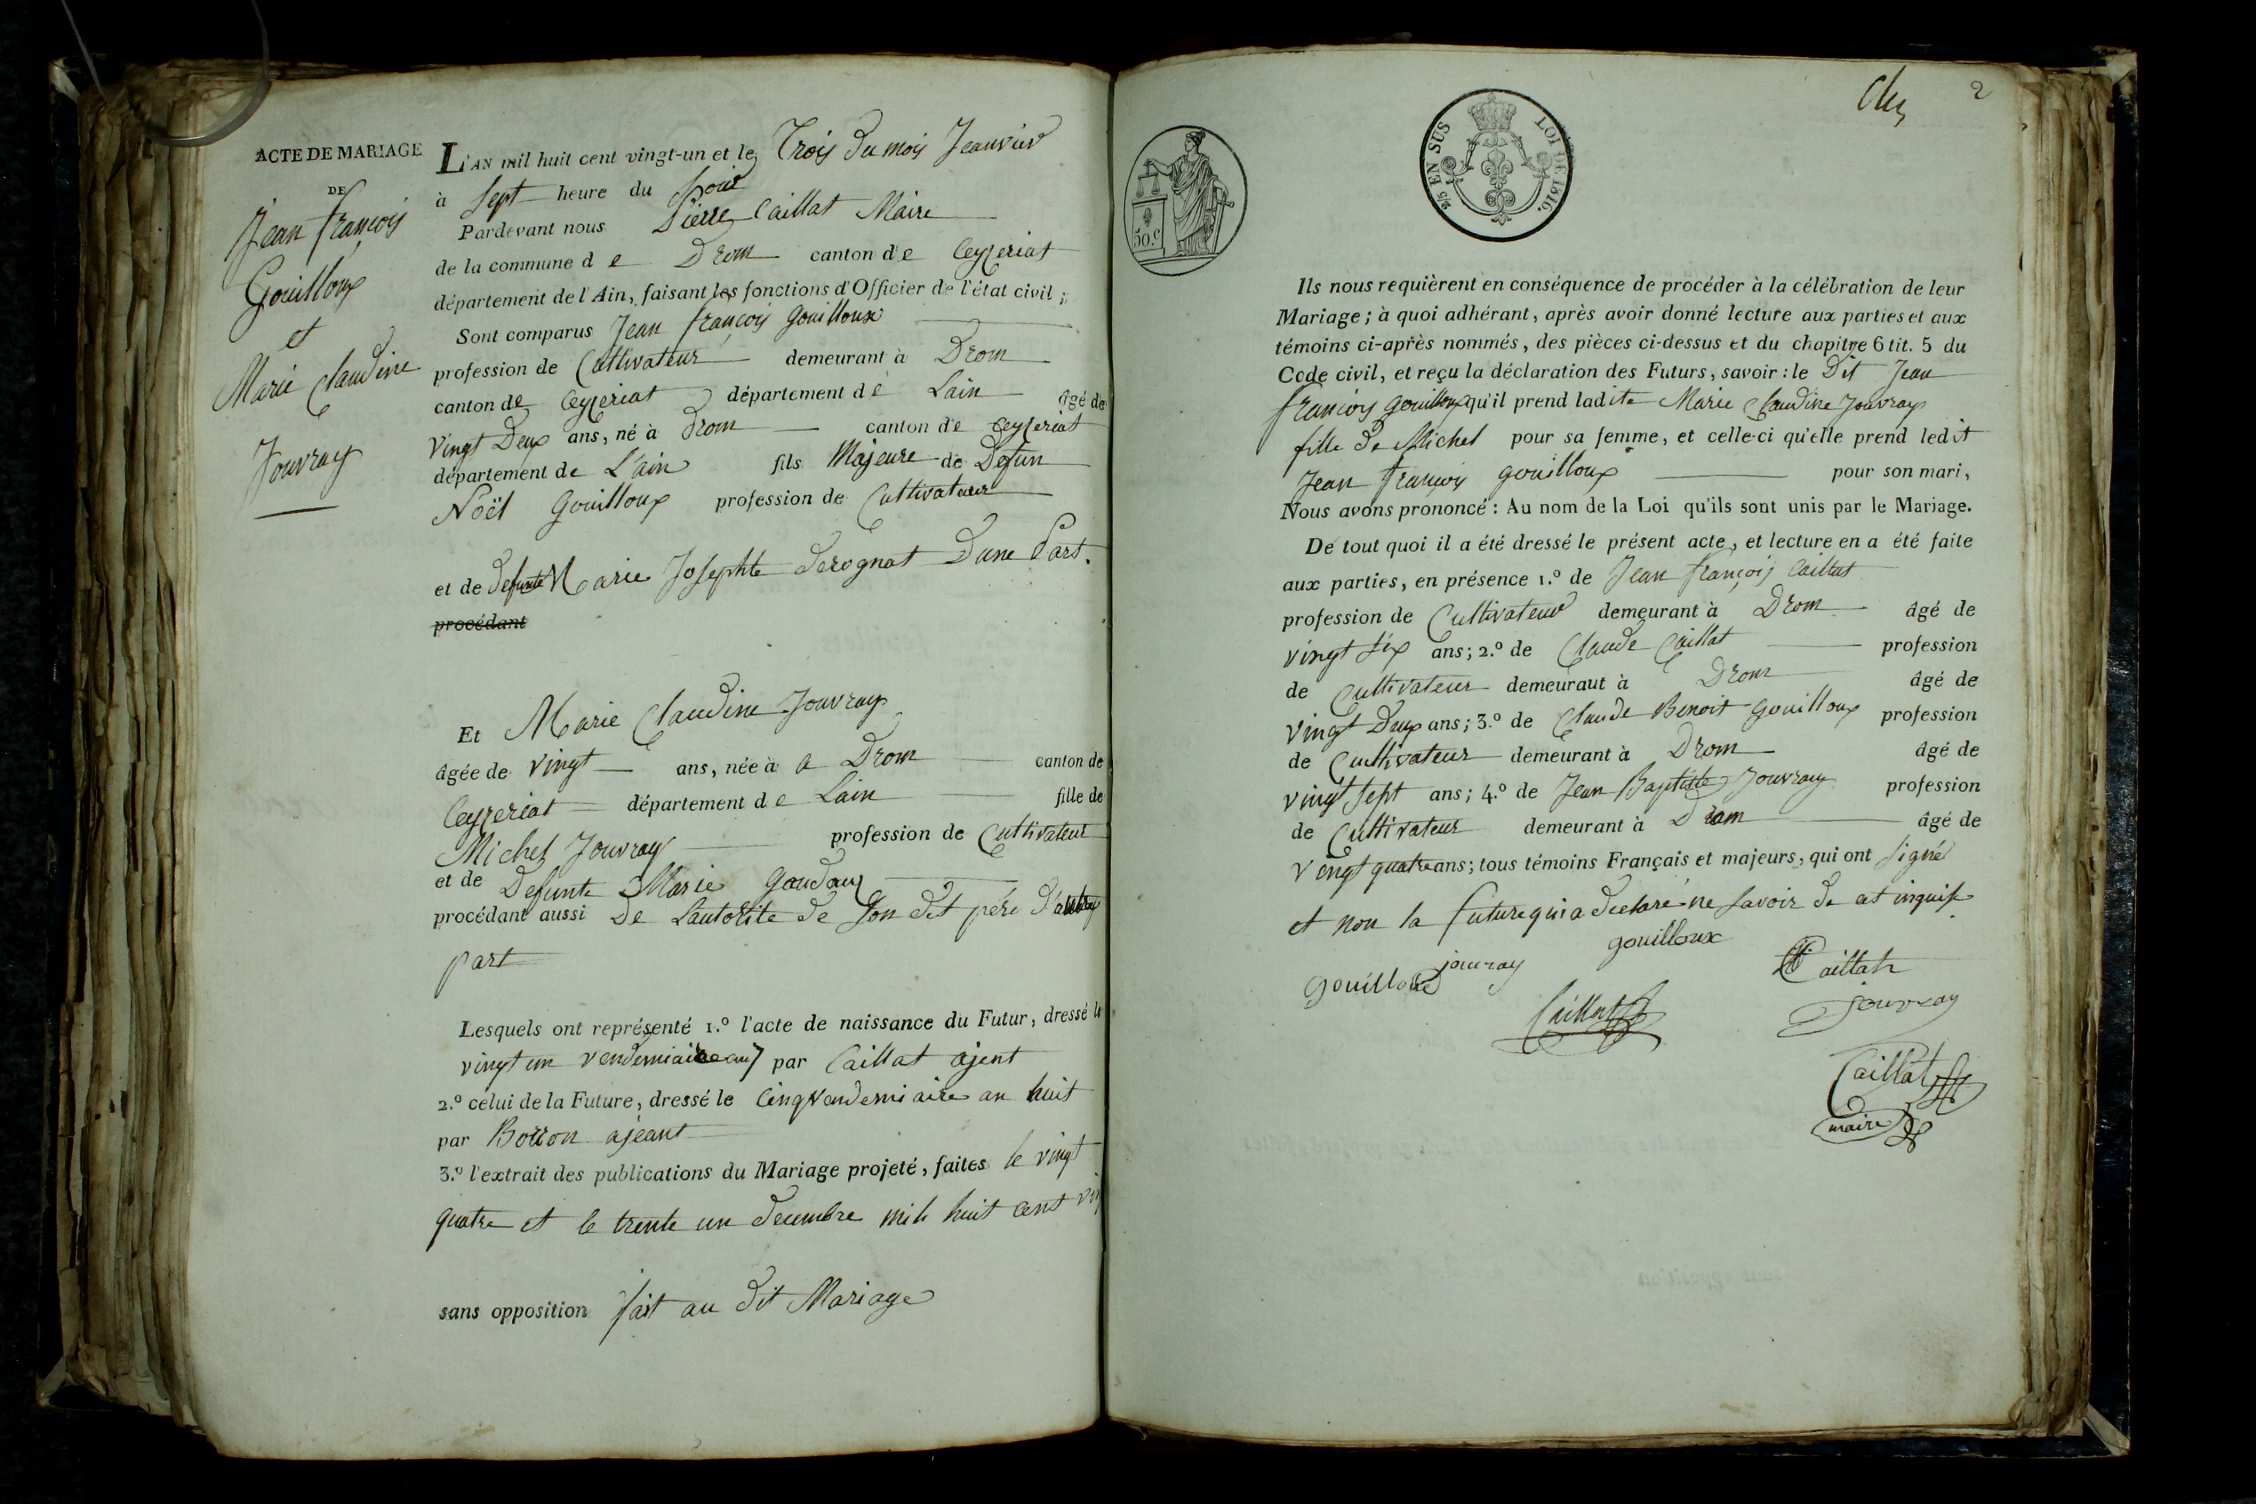 ACTE DE MARIAGE
DE
Jean françois
Gouilloux
et
Marie Claudine
Jouvray
L'AN mil huit cent vingt-un et le Trois du mois Jeanvier
à Sept heure du Soir
Pardevant nous Pierre Caillat Maire
de la commune d e Drom canton d'e Ceyzeriat
département de l'Ain, faisant les fonctions d'Officier de l'état civil ;
Sont comparus Jean françois Gouilloux
profession de Cultivateur demeurant à Drom
canton de Ceyzeriat département d e Lain âgé de
vingt Deux ans, né à Drom canton d'e Ceyzeriat
département de L'ain fils Majeure de Defun
Noël Gouilloux profession de Cultivateur
et de defunte Marie Josephte Derognat Dune Part.
procédant
Et Marie Claudine Jouvray
âgée de vingt ans, née à a Drom canton de
Ceyzeriat département d e Lain fille de
Michel Jouvray profession de Cultivateur
et de Defunte Marie
procédant aussi De Lautorite de Son dit père D'autre
part
Lesquels ont représenté 1.º l'acte de naissance du Futur, dressé le
vingt un vendemiaire an 7 par Caillat ajent
2.º celui de la Future, dressé le Cinq Vendemiaire an huit
par Borron ajeant
3.º l'extrait des publications du Mariage projeté, faites le vingt
quatre et le trente un decembre mil huit cent vin
sans opposition fait au dit Mariage
2
50.C
2/5 EN SUS LOI DE 1816.
Ils nous requièrent en conséquence de procéder à la célébration de leur
Mariage ; à quoi adhérant, après avoir donné lecture aux parties et aux
témoins ci-après nommés, des pièces ci-dessus et du chapitre 6 tit. 5 du
Code civil, et reçu la déclaration des Futurs, savoir : le Dit Jean
françois gouilloux qu'il prend ladite Marie Claudine Jouvray
fille de Michel pour sa femme, et celle-ci qu'elle prend ledit
Jean françois gouilloux pour son mari,
Nous avons prononcé : Au nom de la Loi qu'ils sont unis par le Mariage.
De tout quoi il a été dressé le présent acte, et lecture en a été faite
aux parties, en présence 1.º de Jean françois Caillat
profession de Cultivateur demeurant à Drom âgé de
vingt six ans ; 2.º de Claude Caillat profession
de Cultivateur demeuraut à Drom âgé de
vingt Deux ans ; 3.º de Claude Benoit Gouilloux profession
de Cultivateur demeurant à Drom âgé de
vingt sept ans ; 4.º de Jean Baptiste Jouvray profession
de Cultivateur demeurant à Drom âgé de
vingt quatre ans ; tous témoins Français et majeurs, qui ont signé
et non la future qui a declaré ne savoir de at inquise
gouilloux
jouvray
gouilloux
Caillat
Caillat
jouvray
Caillat
maire